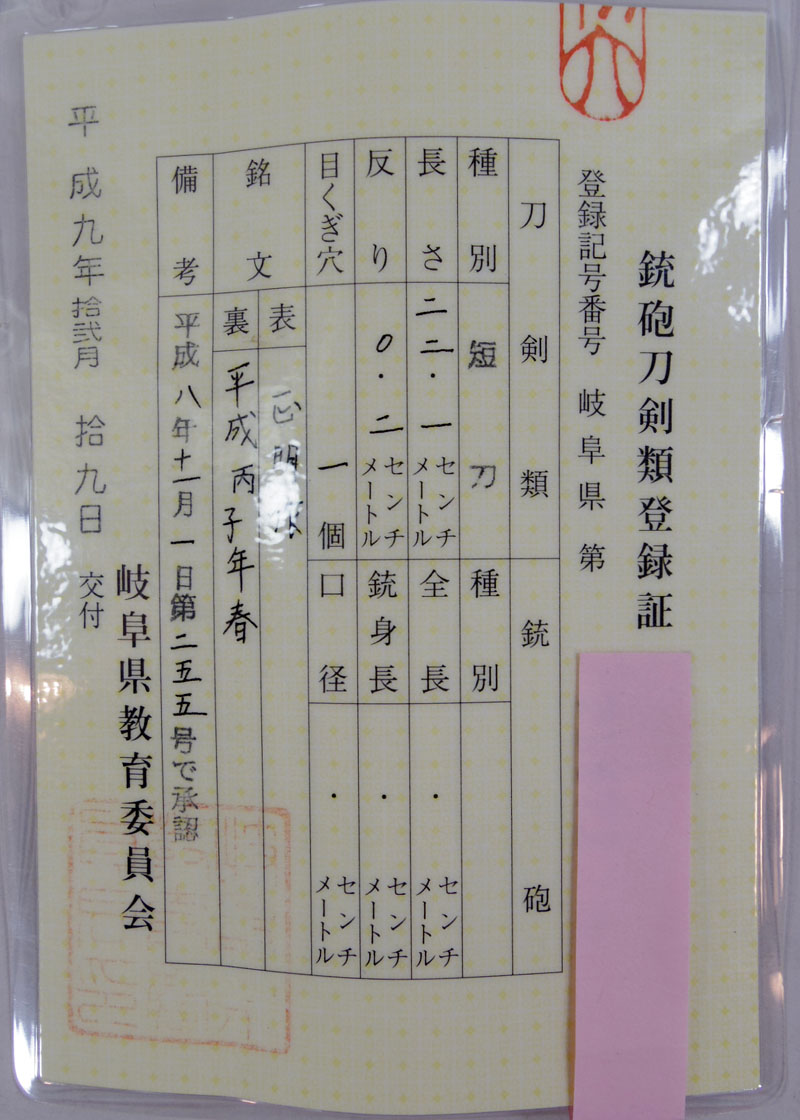 銃砲刀剣類登録証
登録記号番号 岐阜県 第
刀剣類
銃砲
種別 短刀
種別
長さ 二二・一 センチメートル
全長 ・ センチメートル
反り 0・二 センチメートル
銃身長 ・ センチメートル
目くぎ穴 一個
口径 ・ センチメートル
銘文
表 正明
裏 平成丙子年春
備考 平成八年十一月一日第二五五号で承認
岐阜県教育委員会
平成九年拾弐月拾九日 交付